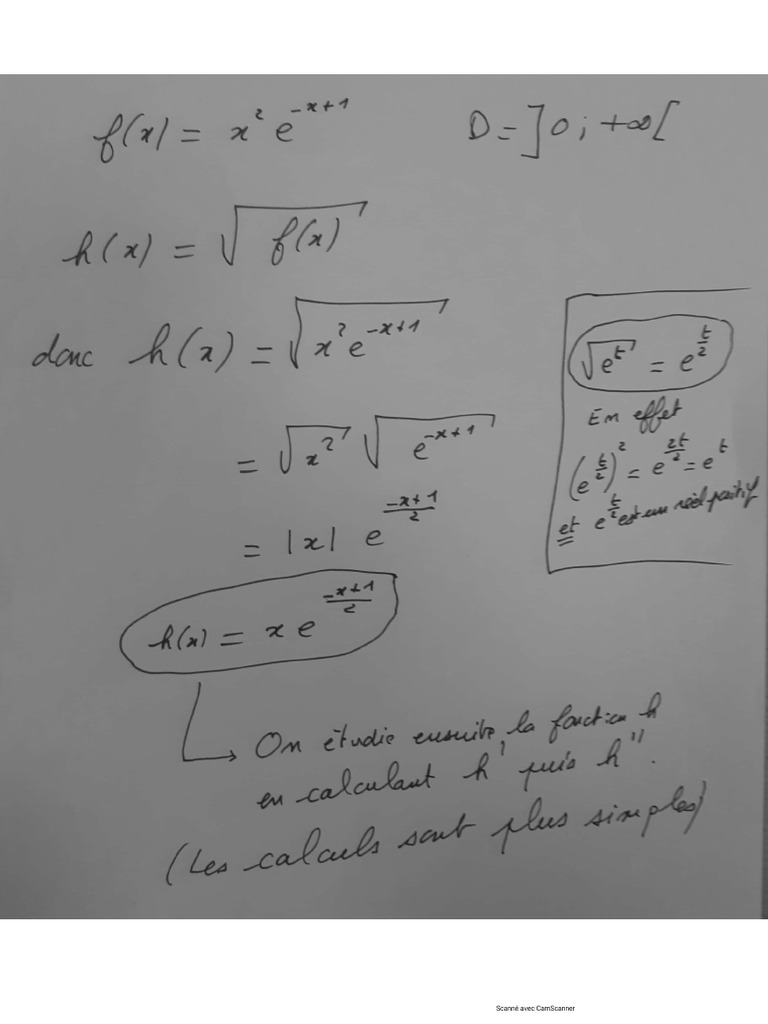 f(x) = x² e^{-x+1}    D = ]0 ; +∞[
h(x) = √(f(x))
donc h(x) = √(x² e^{-x+1})
= √(x²) √(e^{-x+1})
= |x| e^{\frac{-x+1}{2}}
h(x) = x e^{\frac{-x+1}{2}}
√(e^t) = e^{\frac{t}{2}}
En effet
(e^{\frac{t}{2}})² = e^{\frac{2t}{2}} = e^t
et e^{\frac{t}{2}} est un réel positif
On étudie ensuite la fonction h
en calculant h' puis h''.
(Les calculs sont plus simples)
Scanné avec CamScanner